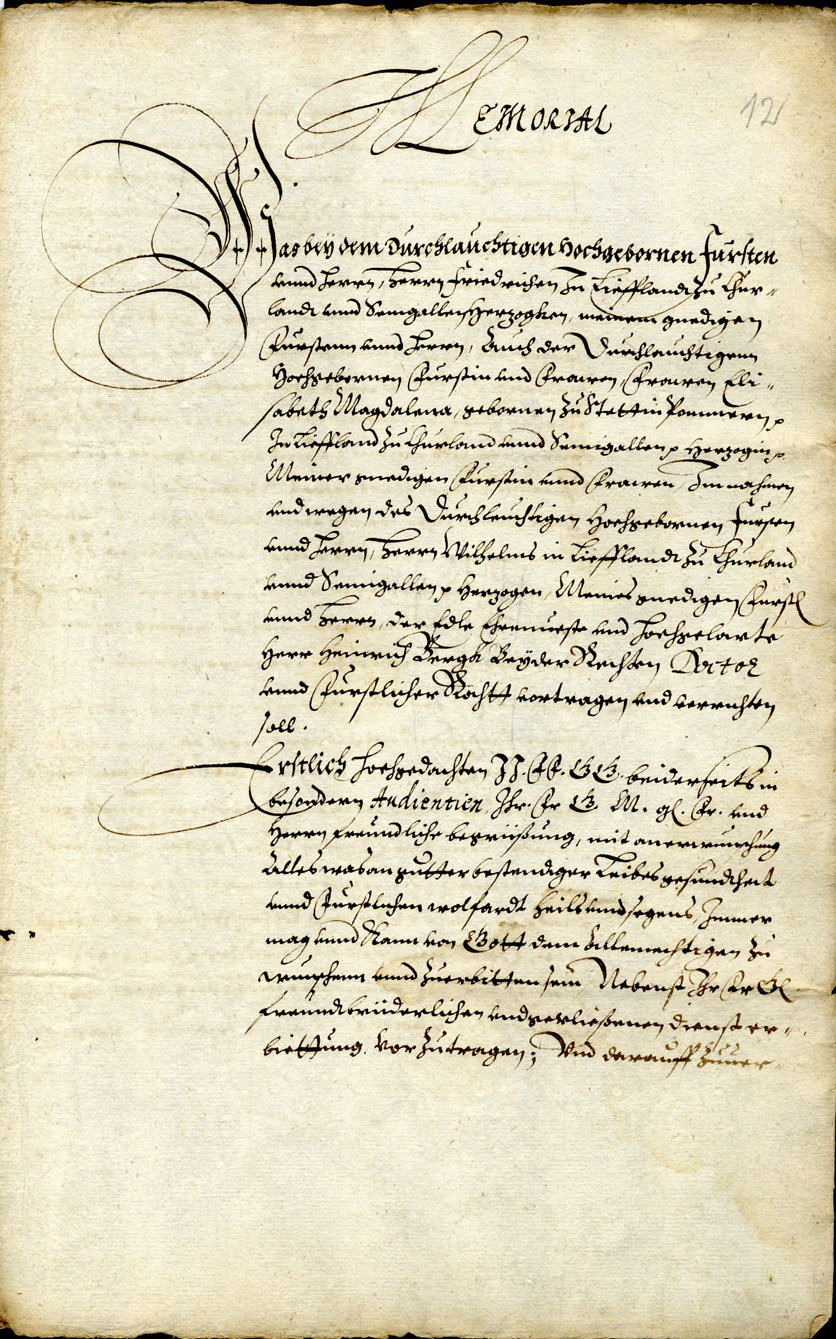 MEMORIAL
12
Was beÿ dem Durchlauchtigen Hochgebornen Fursten
vnnd Herrn, Herrn Friedrichen Zu Liefflandt Zu Chur-
landt vnnd Semgallen Hertzogken, meinem gnedigen
Furstenn vnnd Herrn, Auch der Durchlauchtigenn
Hochgebornen Furstin vnd Frawen, Frawen Eli-
sabeth Magdalena, gebornen Zu Stettin Pommern p
In Lieffland Zu Churland vnnd Semigallen p Hertzogin p
Meiner gnedigen Furstin vnnd Frawen, Im nahmen
vnd wegen des Durchleuchtigen Hochgebornen Fursten
vnnd Herrn, Herrn Wilhelms in Liefflandt Zu Churland
vnnd Semigallen p Hertzogen, Meines gnedigen Furst
vnnd Herrn, der Edle Ehrnueste vnd Hochgelarte
Herr Heinrich Bergk Beÿder Rechten Doctor
vnnd Furstlicher Rahtt vortragen vnd verrichten
soll.
Erstlich Hochgedachten II. FF. GG. beiderseits in
besondern Audientien, Ihr. Fr G. M. gl. Fr. vnd
Herrn freundliche begrüßung, mit anerwunschung
Alles was an gutter bestendiger Leibes gesundtheit
vnnd Furstlichen wolfardt heils vnd segens, Immer
mag vnnd Kann von Gott dem Allemechtigen Zu
wunschenn vnnd Zuerbitten sein Nebenst Ihr Fr G
freundtbrüderlichen vnd geflißenen dienst er-
biettung, vorzutragen; Vnd darauff Zuuer-